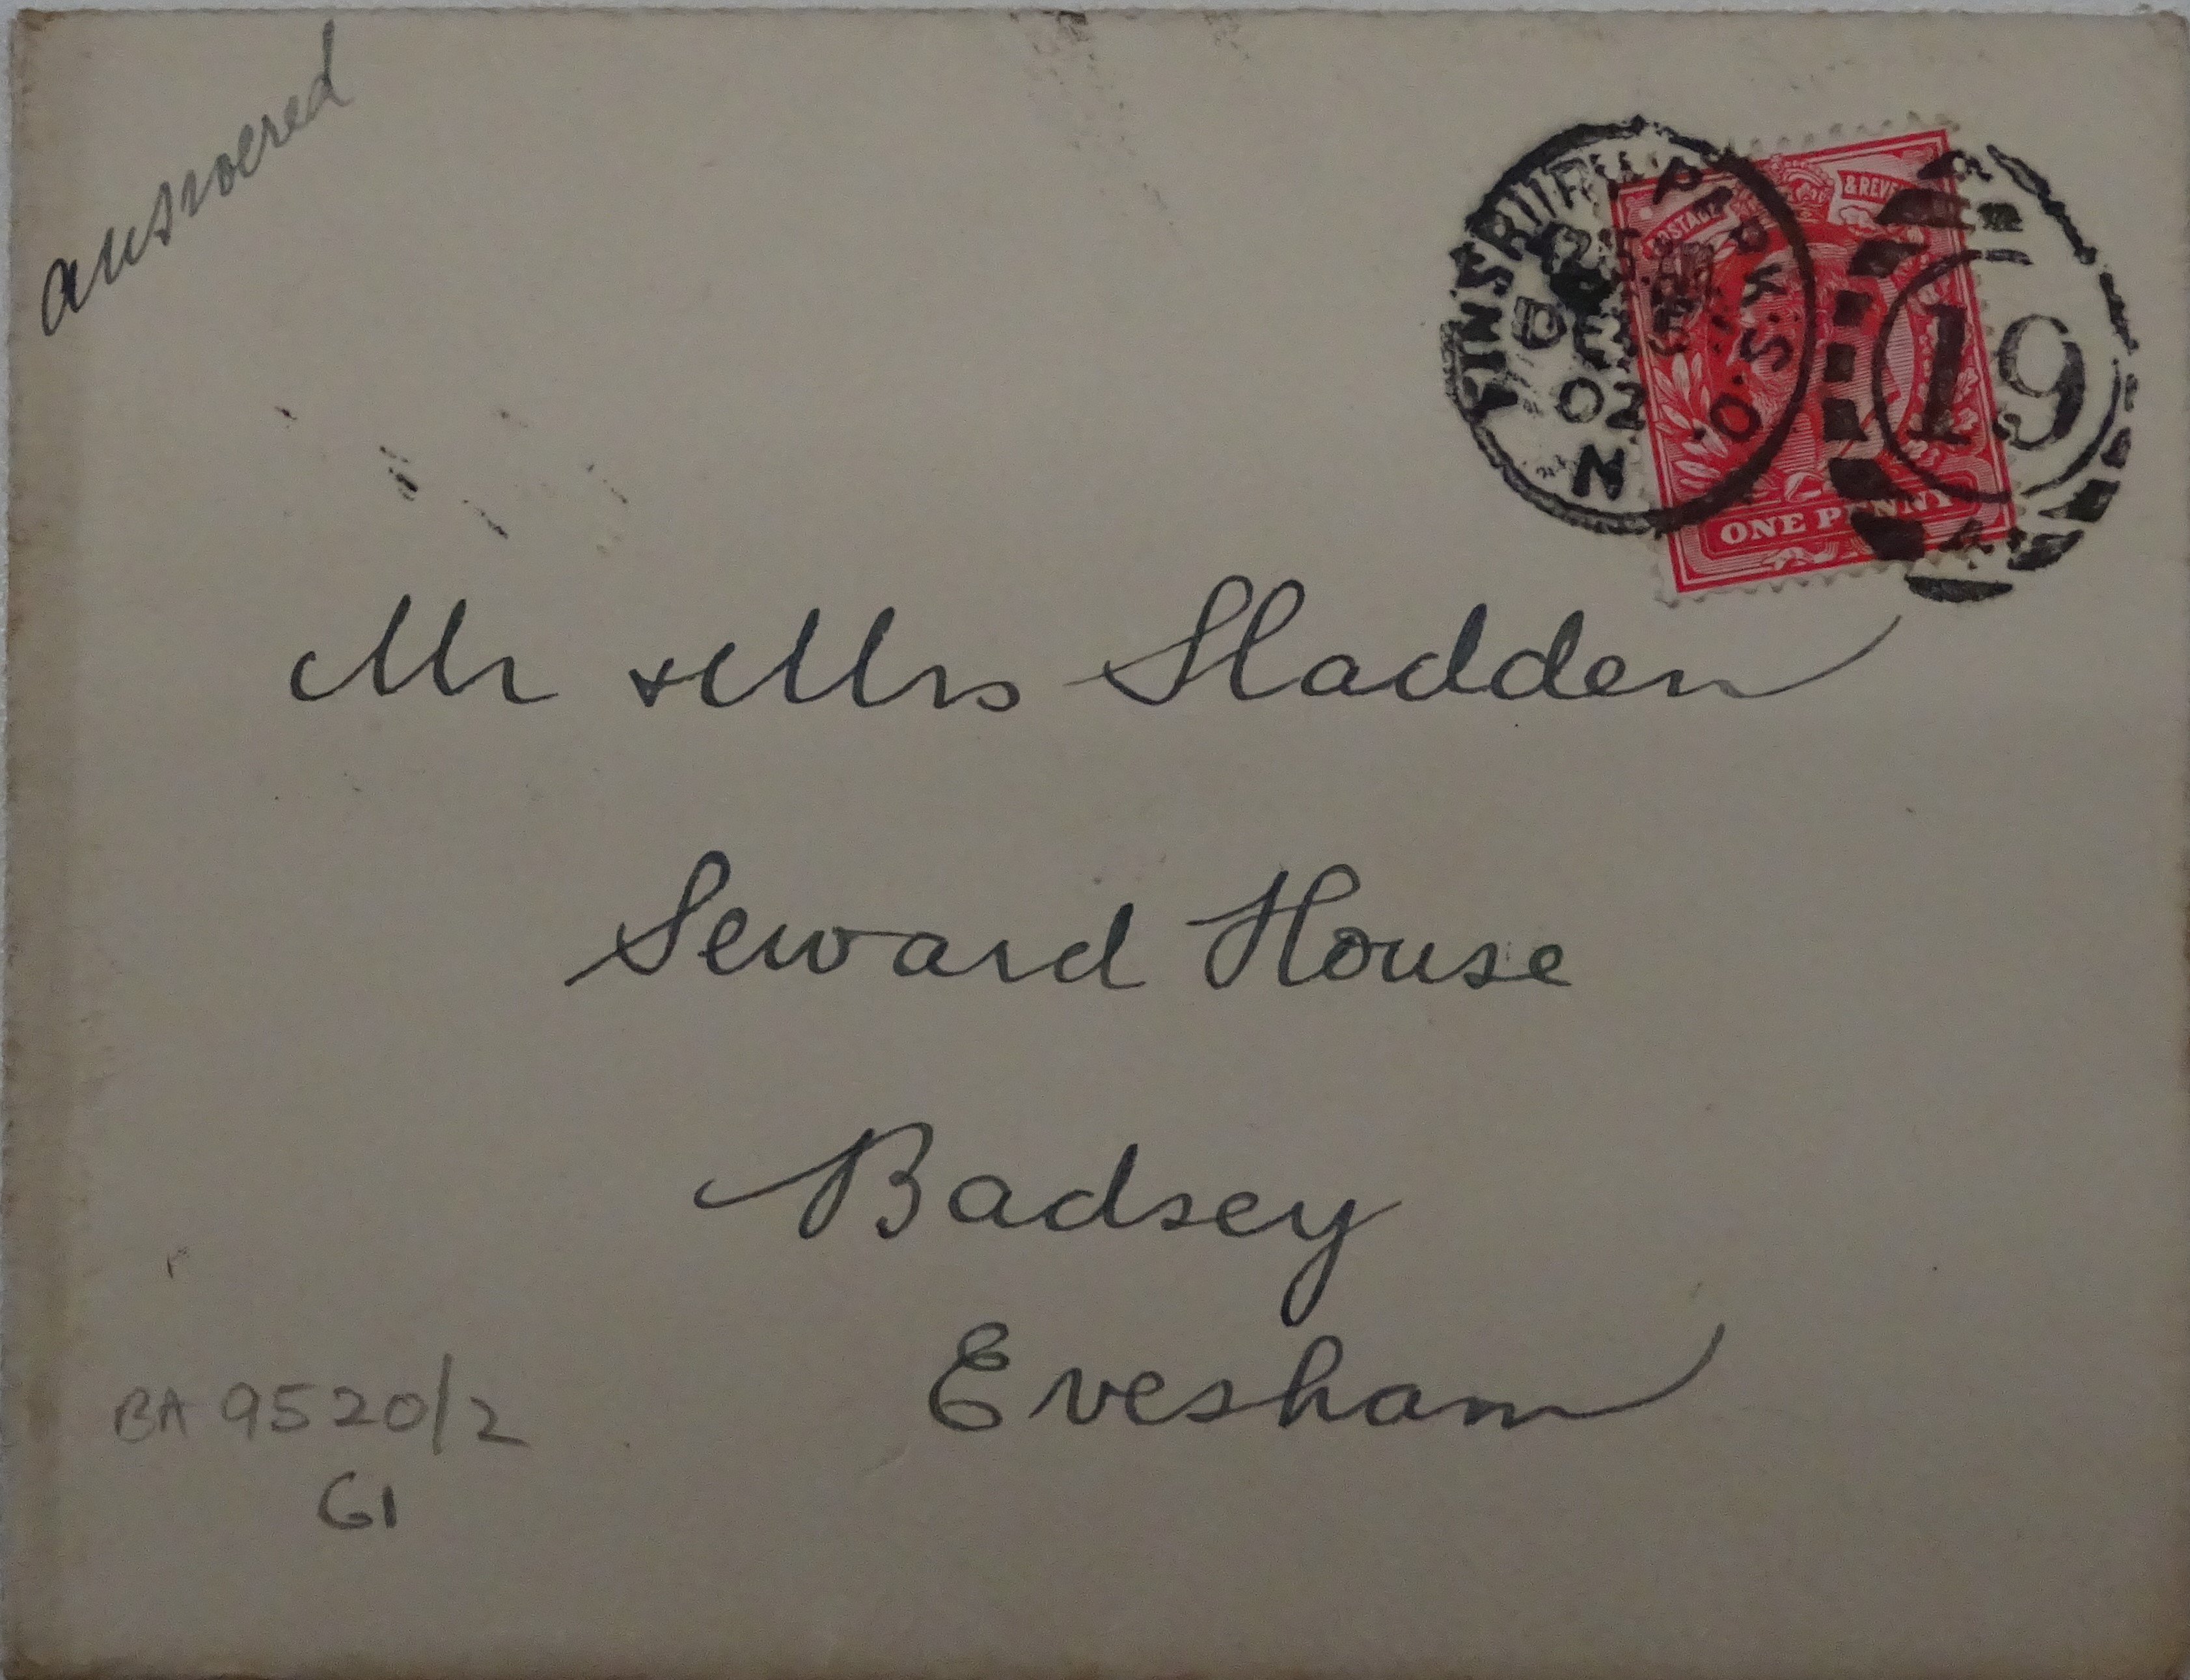 answered
FINSBURY PK. S.O.
DE
02
N
19
POSTAGE & REVE
ONE PENNY
Mr & Mrs Sladden
Seward House
Badsey
Evesham
BA 9520/2
61